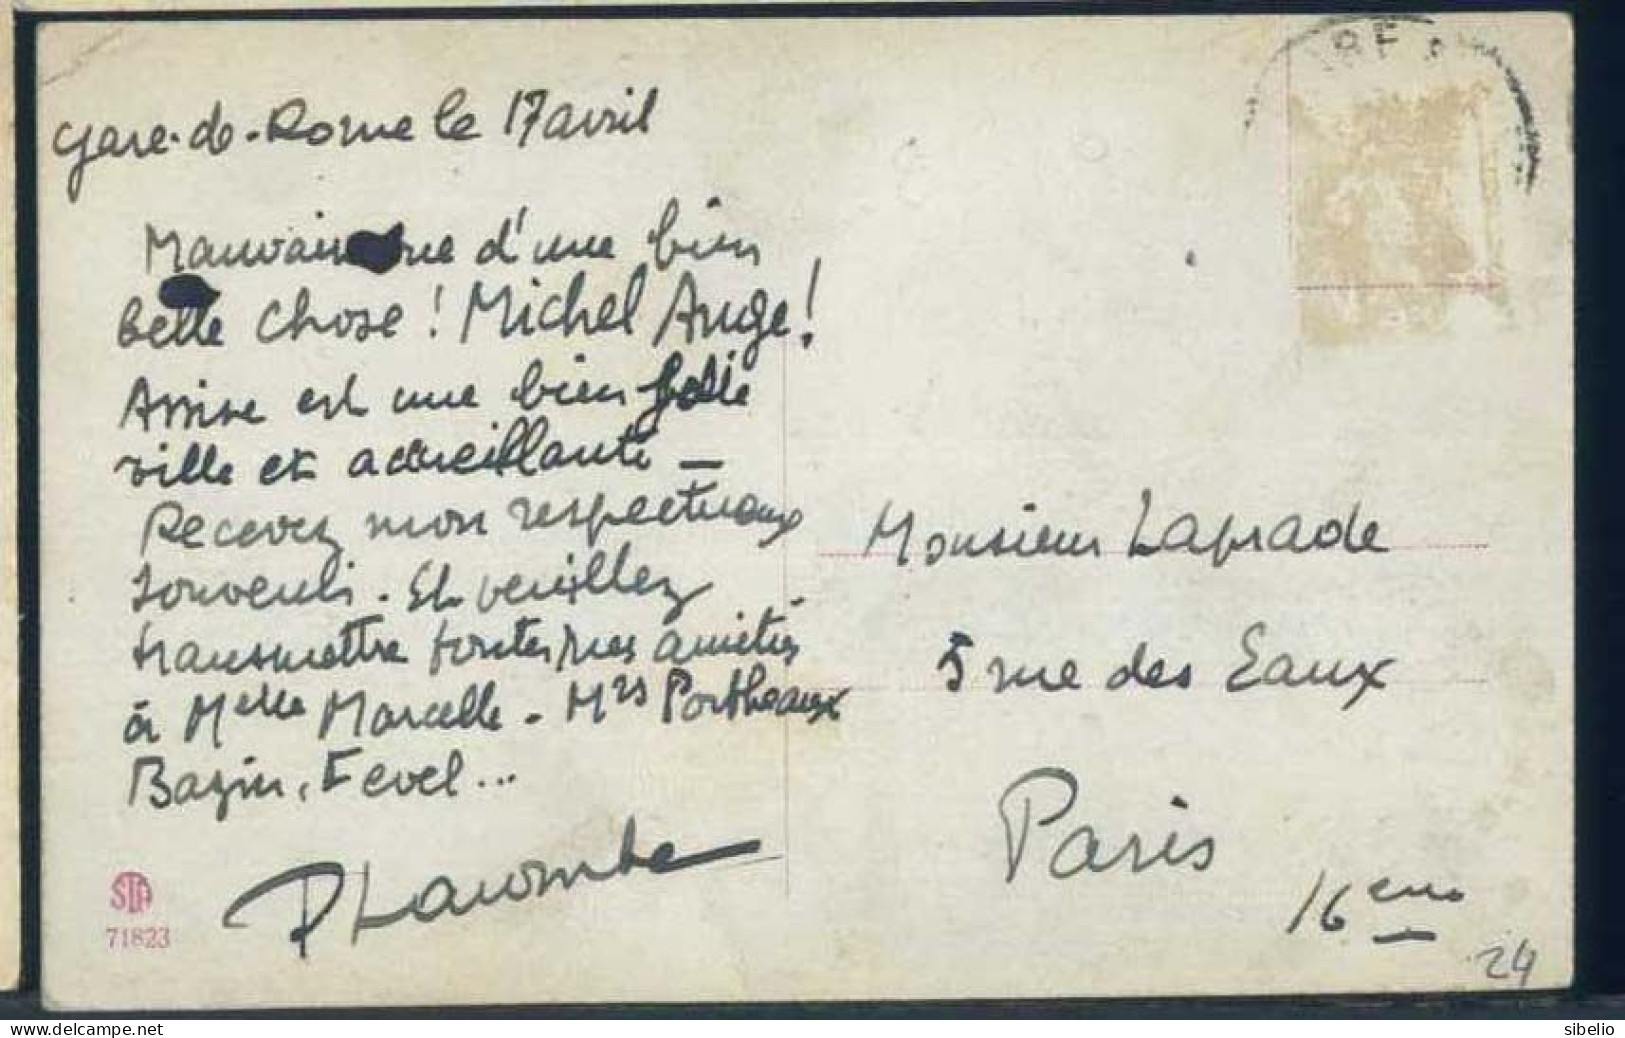 Gare-de-Rome le 17 avril
Mauvaise vue d'une bien
belle chose ! Michel Ange !
Assise est une bien jolie
ville et accueillante –
Recevez mon respectueux
souvenir. Et veuillez
transmettre toutes mes amitiés
à Melle Marcelle - Mrs Portheaux
Bazin, Fevel...
PLacombe
Monsieur Laprade
5 rue des Eaux
Paris
16eme
24
STA
71823
sibelio